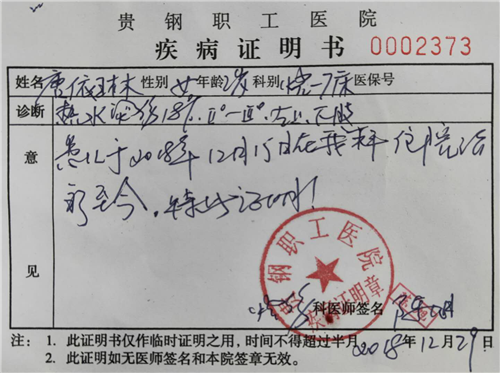 贵钢职工医院
疾病证明书 0002373
姓名 唐依琳 性别 女 年龄 2岁 科别 烧 7床 医保号
诊断 热水烫伤18% II°-III° 左上、下肢
意见 患儿于2018年12月15日在我科住院治
疗至今,特此证明!
贵钢职工医院
疾病证明章
烧伤 科医师签名
注: 1. 此证明书仅作临时证明之用,时间不得超过半月
2018年12月29日
2. 此证明如无医师签名和本院签章无效。